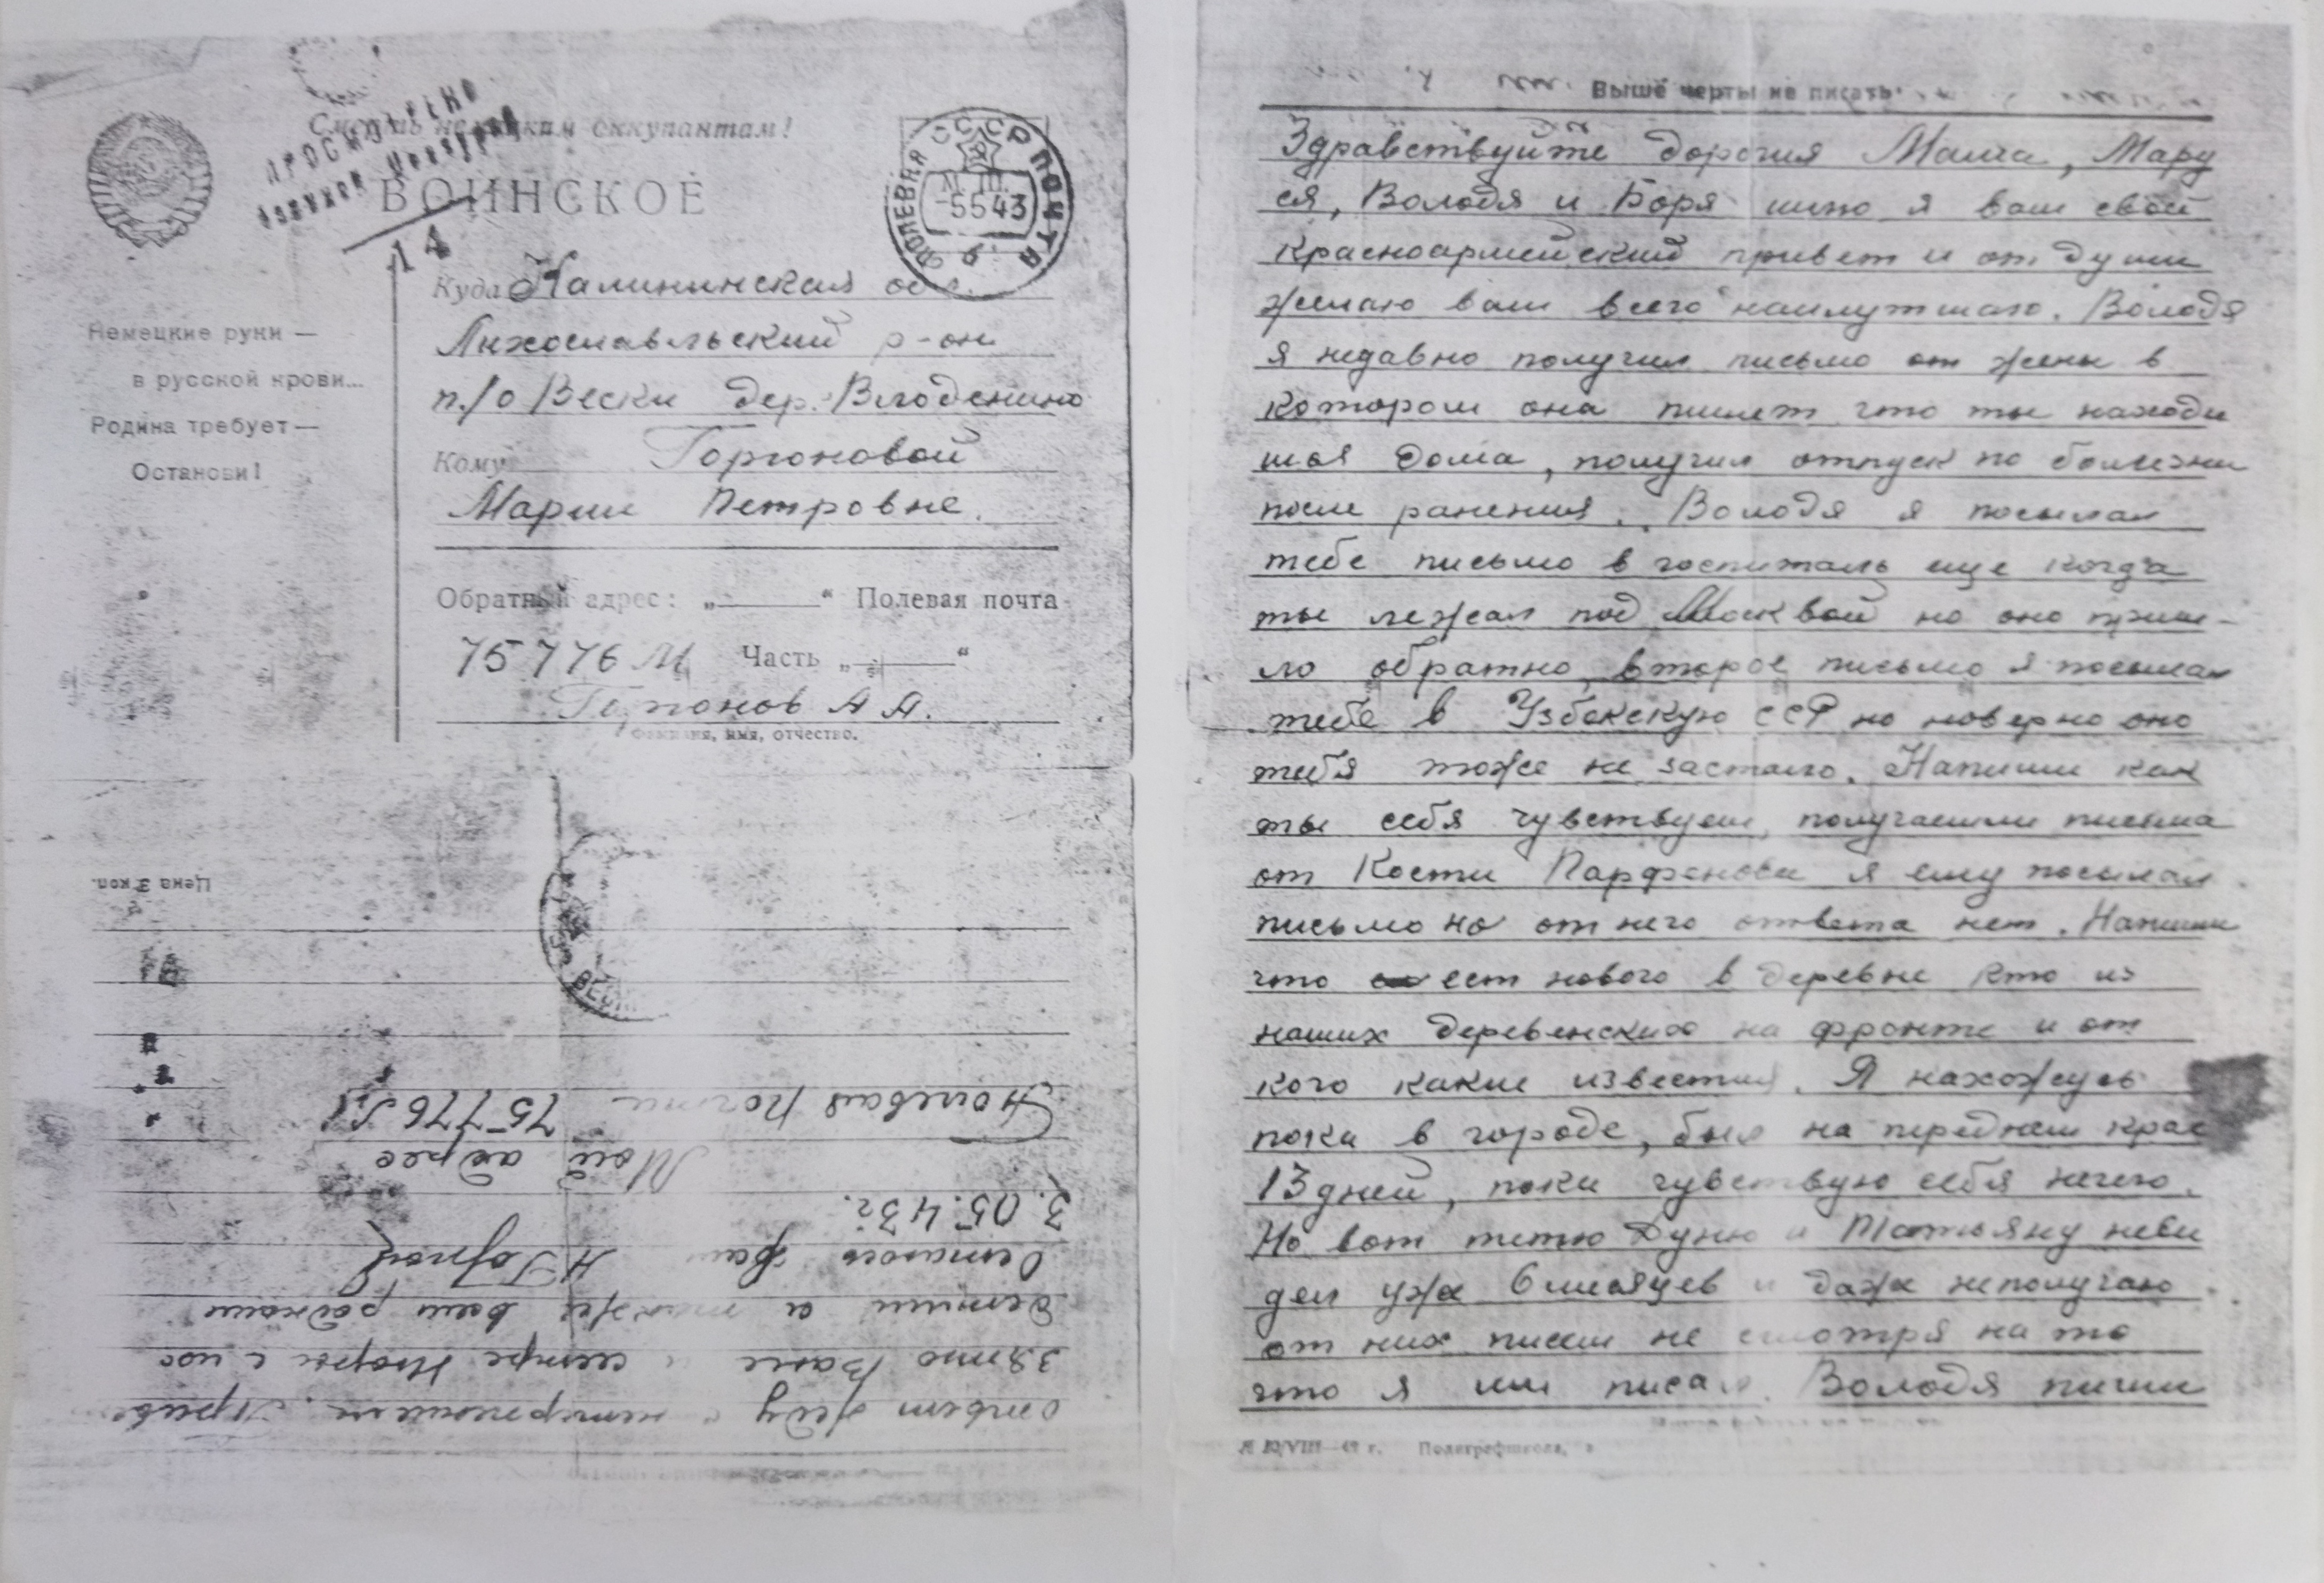 Смерть немецким оккупантам!
ПРОСМОТРЕНО
Военной Цензурой
14
ВОИНСКОЕ
СССР ПОЧТА
ПОЛЕВАЯ
-5543
Немецкие руки —
в русской крови...
Родина требует —
Останови!
Куда Калининская обл.
Лихославльский р-он
п/о Вески дер. Влоденино
Кому Горюновой
Марии Петровне.
Обратный адрес: „ “ Полевая почта
75776 М Часть „ “
Горюнов А А.
Фамилия, имя, отчество.
Цена 3 коп.
Выше черты не писать
Здравствуйте дорогия Мама, Мару
ся, Володя и Боря шлю я вам свой
красноармейский привет и от души
желаю вам всего наилутшаго. Володя
я недавно получил письмо от жены в
котором она пишет что ты находи
шся дома, получил отпуск по болезни
после ранения. Володя я посылал
тебе письмо в госпиталь еще когда
ты лежал под Москвой но оно приш-
ло обратно, второе письмо я посылал
тебе в Узбекскую ССР но наверно оно
тебя тоже не застало. Напиши как
ты себя чувствуеш, получаешли письма
от Кости Парфенова я ему посылал
письмо но от него ответа нет. Напиши
что ест нового в деревне кто из
наших деревенских на фронте и от
кого какие известия. Я нахожусь
пока в городе, был на переднем крае
13 дней, пока чувствую себя ничего.
Но вот тетю Дуню и Татьяну неви
дел уже 6 месяцев и даже неполучаю
от них писем не смотря на то
что я им писал. Володя пиши
Полиграфшкола,
ответ жду с нетерпением. Приве
зятю Ване и сестре Нюры с их
детми а также всем родным
Остаюсь ваш А Горюнов
3.05.43г.
Мой адрес
Полевая Почта 75776 М